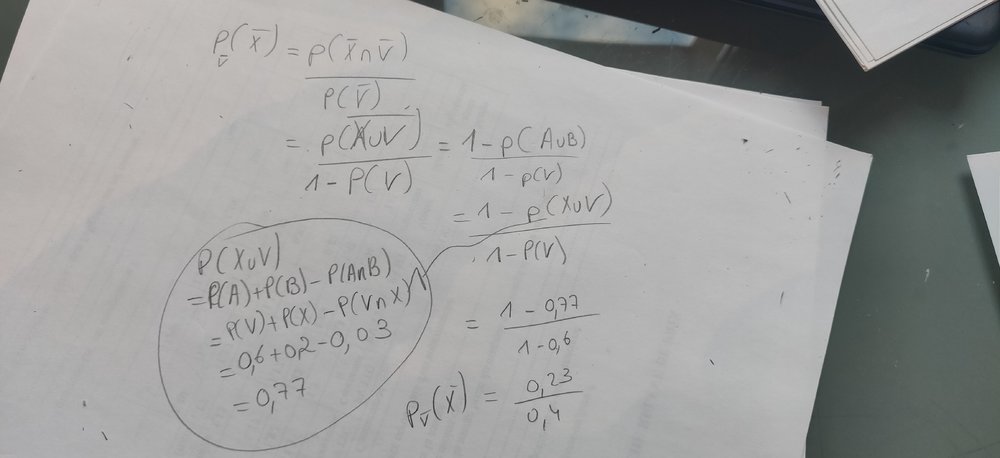 P_V̄(X̄) = P(X̄∩V̄)
P(V̄)
= P(X∪V)‾ = 1-P(A∪B)
1-P(V) 1-P(V)
= 1-P(X∪V)
1-P(V)
P(X∪V)
=P(A)+P(B)-P(A∩B)
=P(V)+P(X)-P(V∩X)
=0,6+0,2-0,03
=0,77
= 1-0,77
1-0,6
P_V̄(X̄) = 0,23
0,4